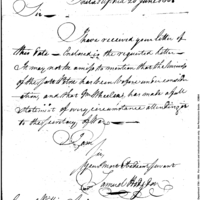 Philadelphia 20 June 180
Sir
I have received your letter of
this date – Enclosed is the requested letter
It may not be amiss to mention that the business
of the has been before under conside
ration, and that Mr Wheelen, has made a full
statement of every circumstance attending it
to the Secretary of War.
I am
Sir
Your most Obedient Servant
Samuel Hodgdon